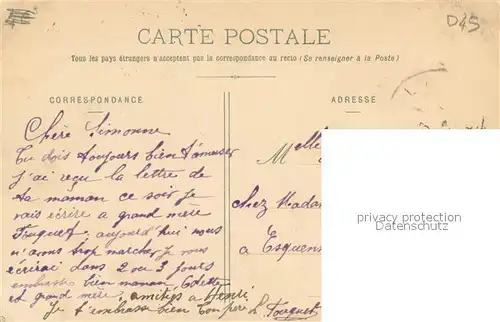 D45
CARTE POSTALE
Tous les pays étrangers n'acceptent pas la correspondance au recto (Se renseigner à la Poste)
CORRESPONDANCE
ADRESSE
Chère Simonne
Tu dois toujours bien t'amuser
j'ai reçu la lettre de
ta maman ce soir je
vais écrire a grand mère
Fouquet, aujourd'hui nous
n'avons trop marcher je vous
écrirai dans 2 ou 3 jours
embrasse bien maman Odette
et grand mère, amitiés a Henri
Je t'embrasse bien ton père L. Fouquet
Melle
chez Madam
a Esquens
privacy protection
Datenschutz